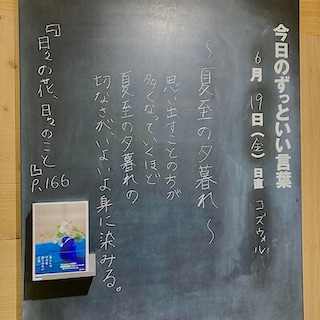 今日のずっといい言葉
6月19日(金)日直 コズウォル
～夏至の夕暮れ～
思い出すことの方が
多くなっていくほど
夏至の夕暮れの
切なさがいよいよ身に染みる。
『日々の花、日々のこと』
P.166